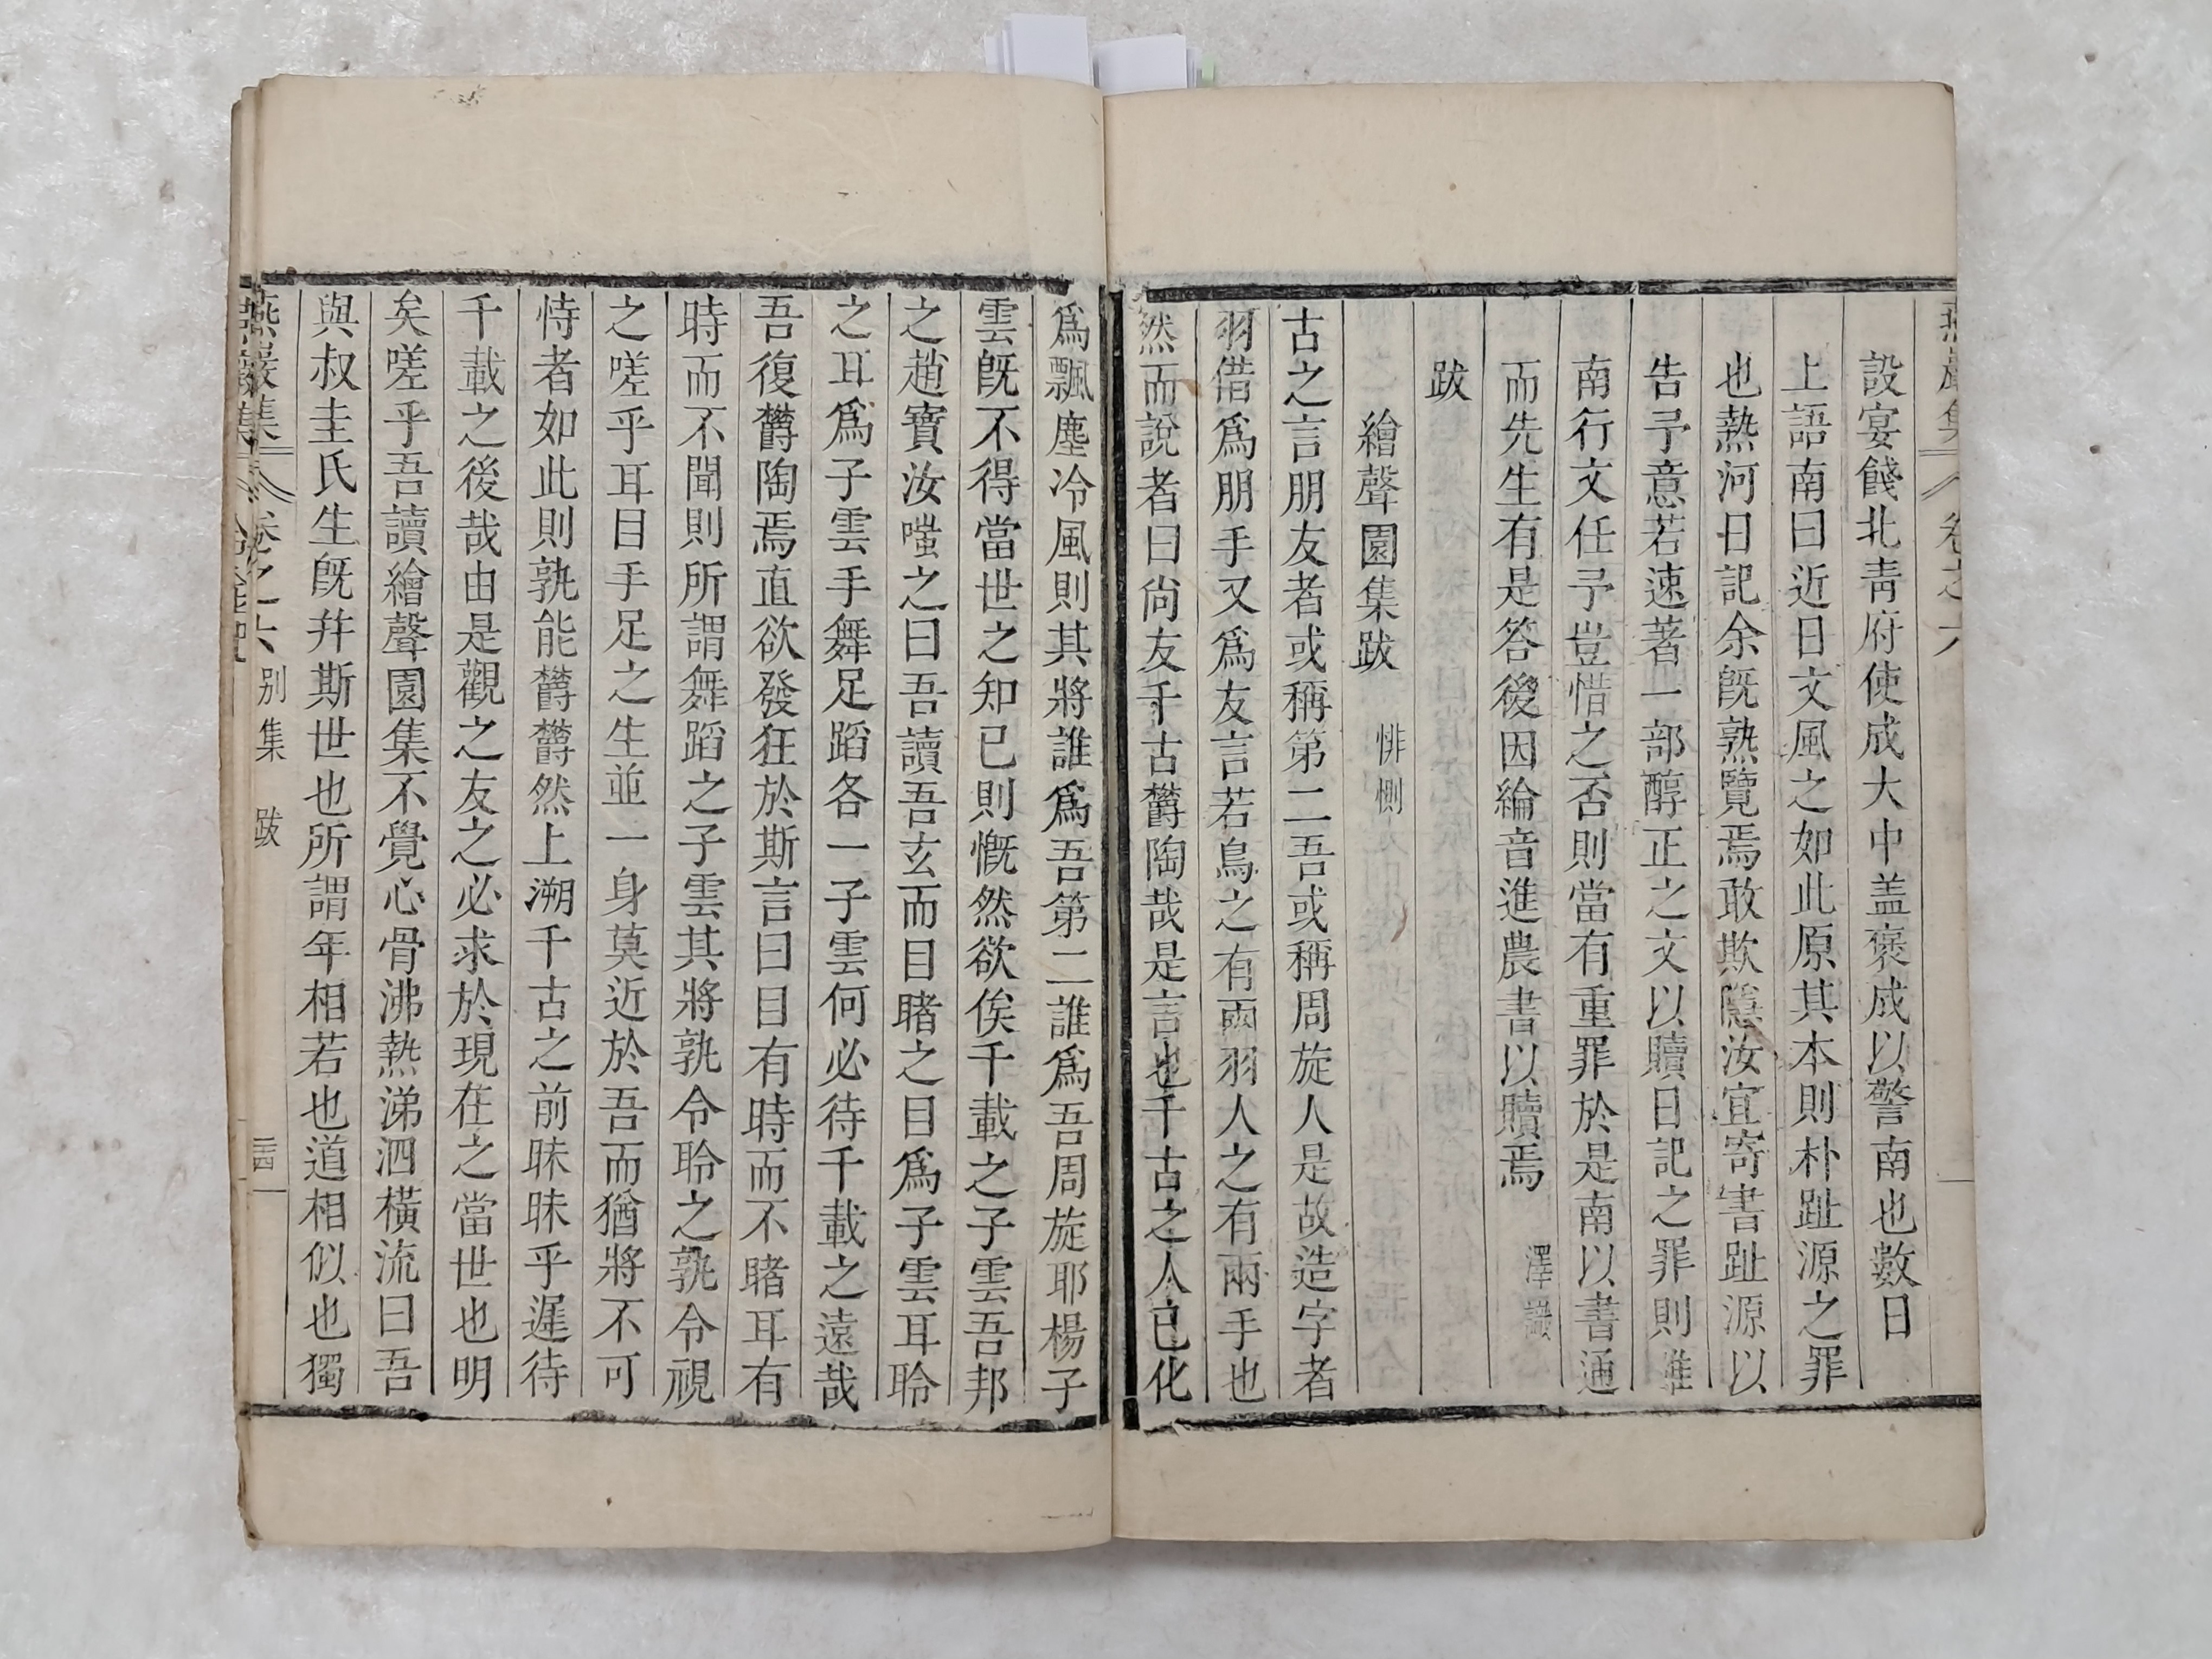 燕巖集 卷之六
設宴餞北靑府使成大中盖褒成以警南也數日
上語南曰近日文風之如此原其本則朴趾源之罪
也熱河日記余旣熟覽焉敢欺隱汝宜寄書趾源以
告予意若速著一部醇正之文以贖日記之罪則雖
南行文任予豈惜之否則當有重罪於是南以書通
而先生有是答後因綸音進農書以贖焉 澤謹
跋
繪聲園集跋 悱惻
古之言朋友者或稱第二吾或稱周旋人是故造字者
羽借爲朋手又爲友言若鳥之有兩羽人之有兩手也
然而說者曰尙友千古欝陶哉是言也千古之人已化
爲飄塵冷風則其將誰爲吾第二誰爲吾周旋耶楊子
雲旣不得當世之知已則慨然欲俟千載之子雲吾邦
之趙寶汝嗤之曰吾讀吾玄而目睹之目爲子雲耳聆
之耳爲子雲手舞足蹈各一子雲何必待千載之遠哉
吾復欝陶焉直欲發狂於斯言曰目有時而不睹耳有
時而不聞則所謂舞蹈之子雲其將孰令聆之孰令視
之嗟乎耳目手足之生並一身莫近於吾而猶將不可
恃者如此則孰能欝欝然上溯千古之前昧昧乎遲待
千載之後哉由是觀之友之必求於現在之當世也明
矣嗟乎吾讀繪聲園集不覺心骨沸熱涕泗橫流曰吾
與叔圭氏生旣幷斯世也所謂年相若也道相似也獨
燕巖集 卷之六 別集 跋